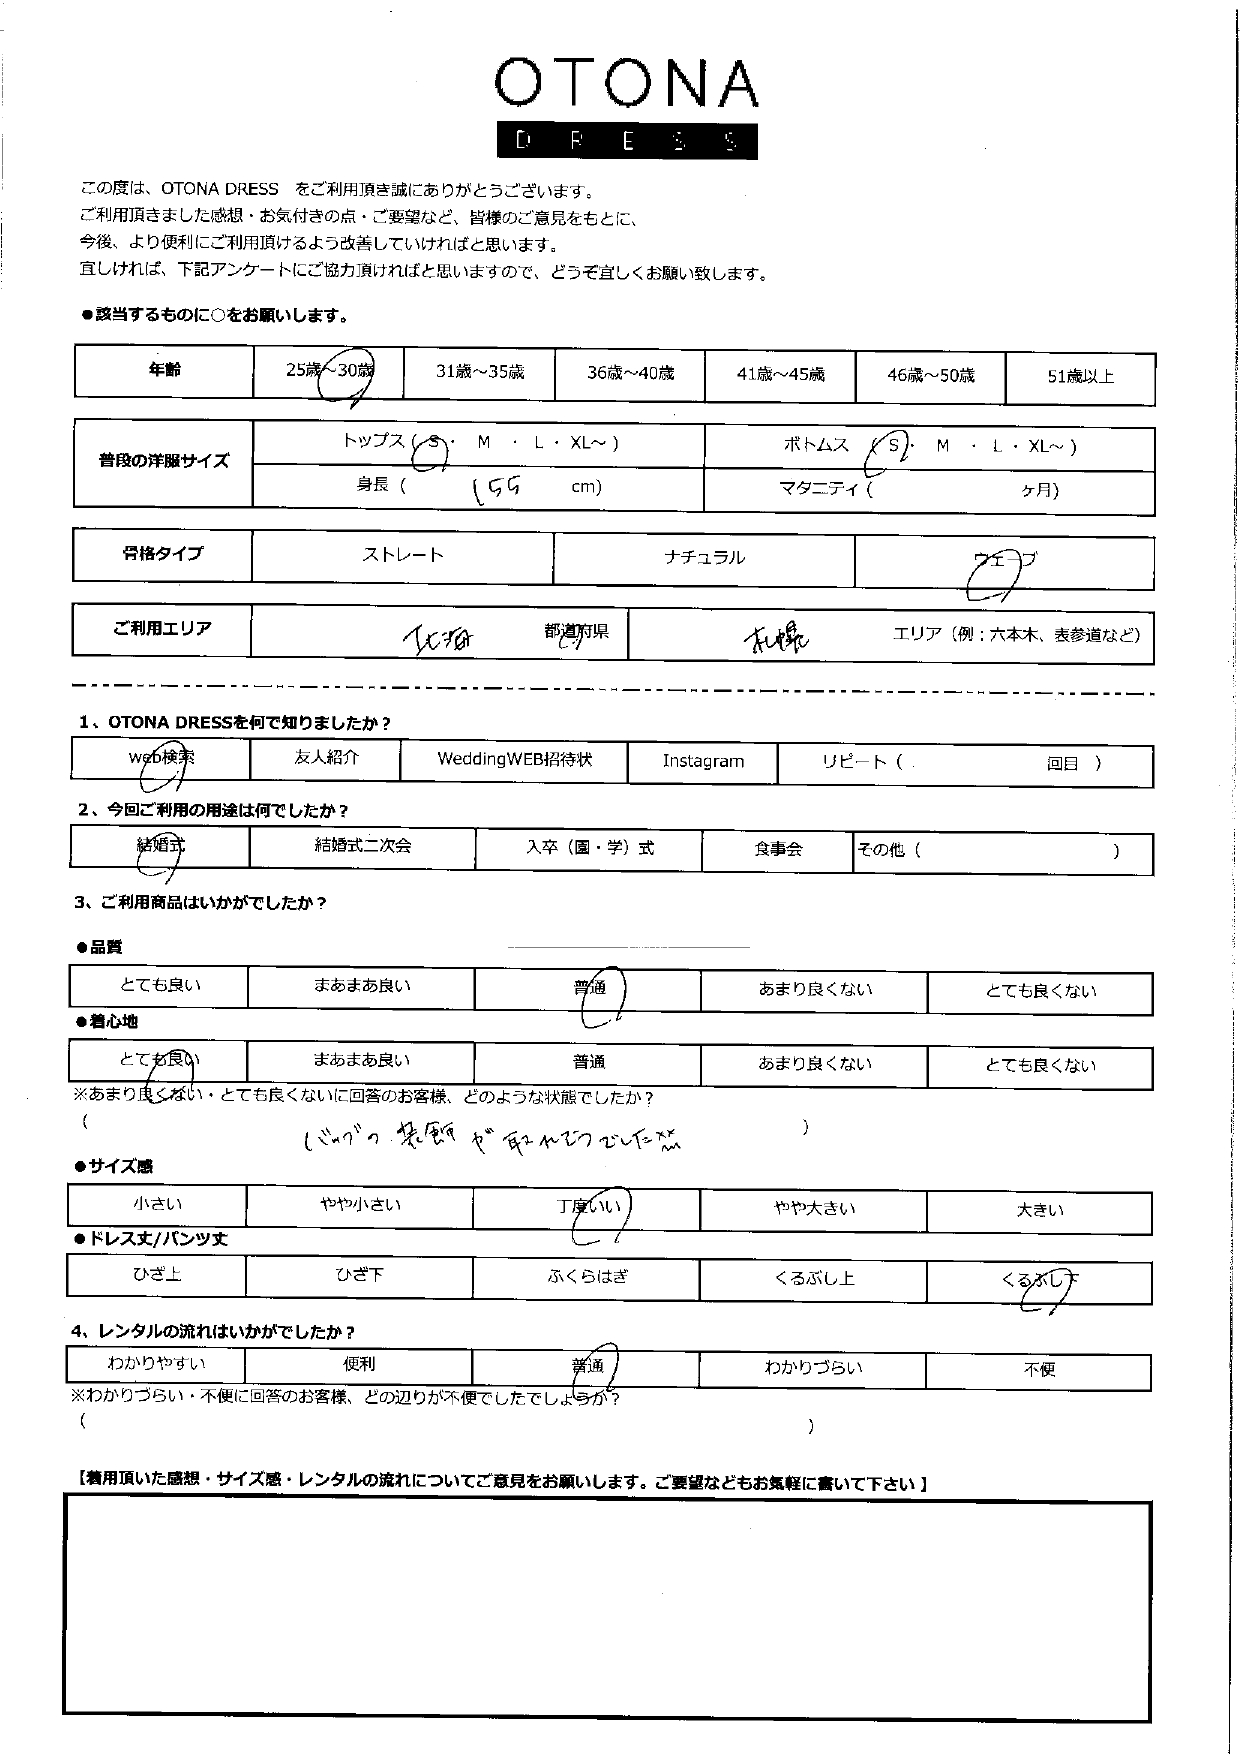 OTONA
DRESS
この度は、OTONA DRESS　をご利用頂き誠にありがとうございます。
ご利用頂きました感想・お気付きの点・ご要望など、皆様のご意見をもとに、
今後、より便利にご利用頂けるよう改善していければと思います。
宜しければ、下記アンケートにご協力頂ければと思いますので、どうぞ宜しくお願い致します。
●該当するものに○をお願いします。
年齢 25歳～30歳 31歳～35歳 36歳～40歳 41歳～45歳 46歳～50歳 51歳以上
普段の洋服サイズ トップス ( S ・ M ・ L ・ XL～ ) ボトムス ( S ・ M ・ L ・ XL～ )
身長 ( 155 cm) マタニティ ( ヶ月)
骨格タイプ ストレート ナチュラル ウェーブ
ご利用エリア 北海 都道府県 札幌 エリア（例：六本木、表参道など）
1、OTONA DRESSを何で知りましたか？
web検索 友人紹介 WeddingWEB招待状 Instagram リピート（ 回目 ）
2、今回ご利用の用途は何でしたか？
結婚式 結婚式二次会 入卒（園・学）式 食事会 その他（ ）
3、ご利用商品はいかがでしたか？
●品質
とても良い まあまあ良い 普通 あまり良くない とても良くない
●着心地
とても良い まあまあ良い 普通 あまり良くない とても良くない
※あまり良くない・とても良くないに回答のお客様、どのような状態でしたか？
( バッグの装飾が取れてつでした )
●サイズ感
小さい やや小さい 丁度いい やや大きい 大きい
●ドレス丈/パンツ丈
ひざ上 ひざ下 ふくらはぎ くるぶし上 くるぶし下
4、レンタルの流れはいかがでしたか？
わかりやすい 便利 普通 わかりづらい 不便
※わかりづらい・不便に回答のお客様、どの辺りが不便でしたでしょうか？
( )
【着用頂いた感想・サイズ感・レンタルの流れについてご意見をお願いします。ご要望などもお気軽に書いて下さい 】